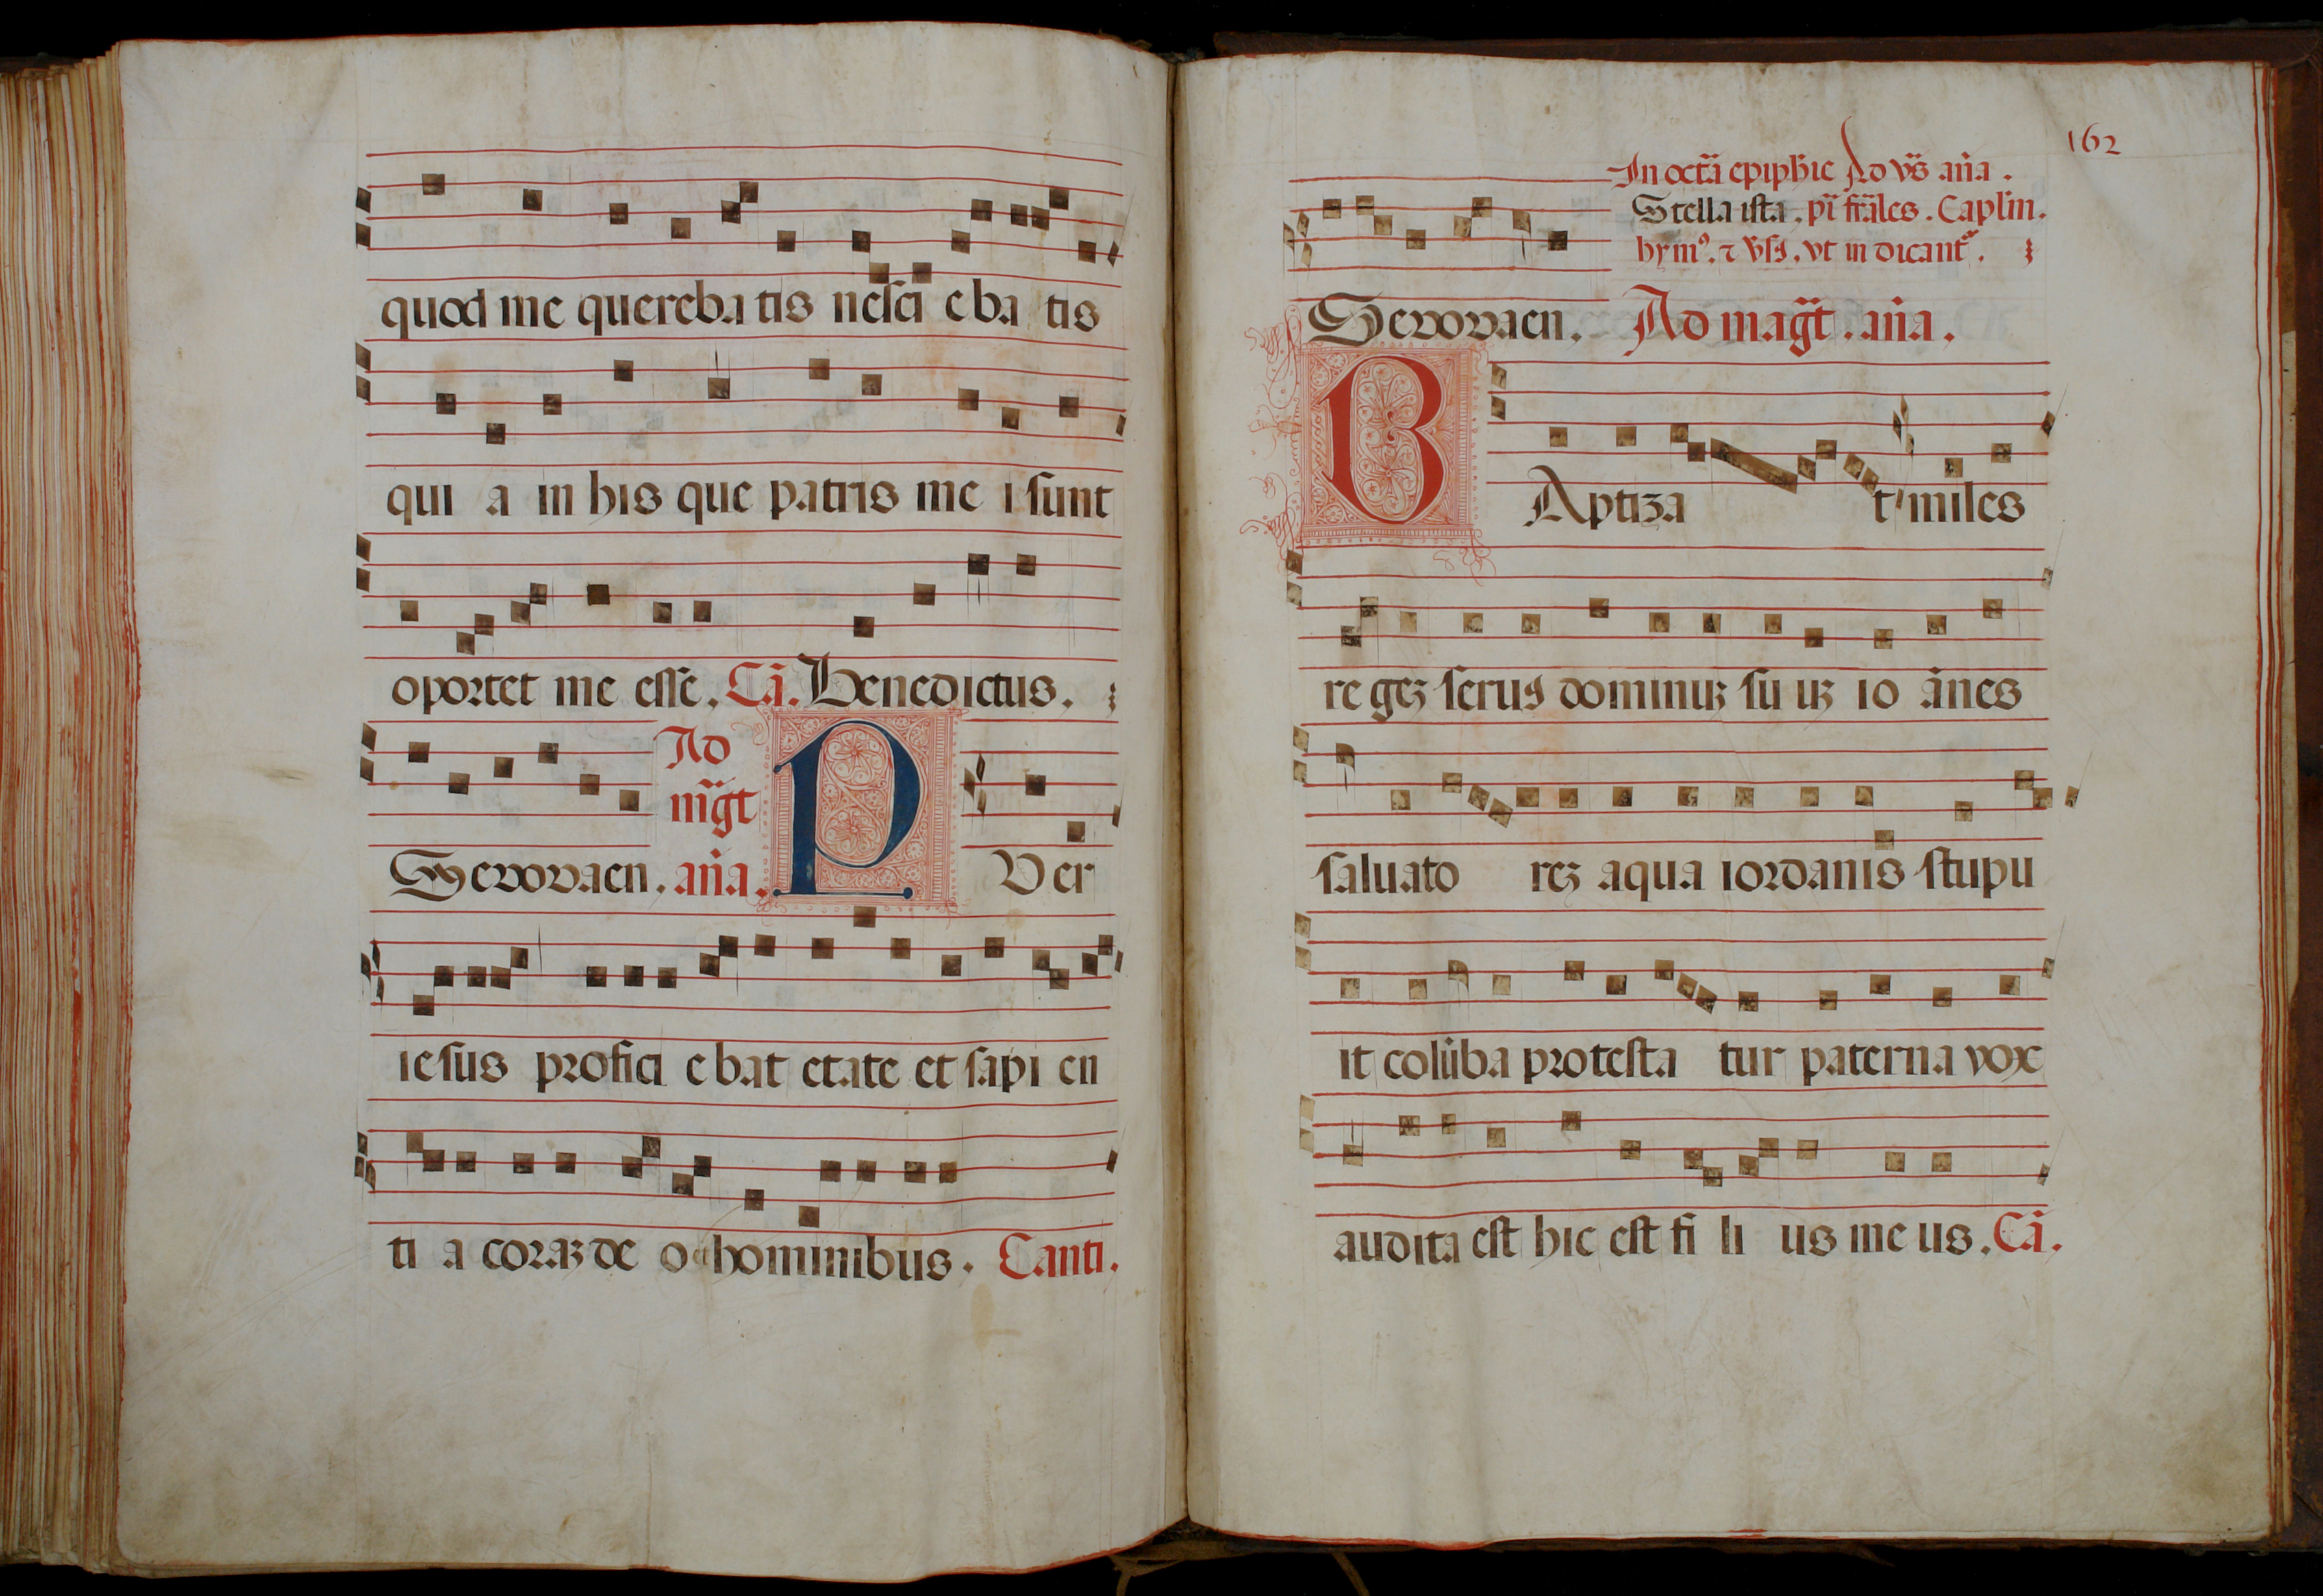 quod me querebatis nesci eba tis
qui a in his que patris me i sunt
oportet me esse. Cā. Benedictus.
Ad
m̄gt
Sevovaen. aña. P Ver
iesus profici ebat etate et sapi en
ti a coraȝ de o ⁊ hominibus. Canti.
162
In octā epiphie Ad vs̄ aña.
Stella ista. pī frāles. Caplm.
hymꝰ. ⁊ vs̄. vt in dicantʳ.
Sevovaen. Ad mag̃t. aña.
B Aptiza t miles
re geȝ seruꝰ dominuȝ su uȝ io ānes
saluato reȝ aqua iordanis stupu
it colūba protesta tur paterna vox
audita est hic est fi li us me us. Cā.